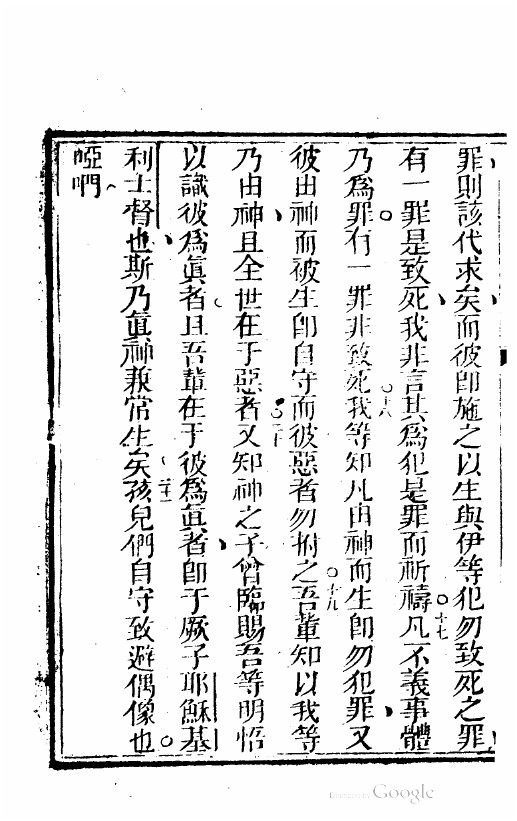 罪則該代求矣而彼卽施之以生與伊等犯勿致死之罪
有一罪是致死我非言其爲犯是罪而祈禱凡不義事體
乃爲罪有一罪非致死我等知凡由神而生卽勿犯罪又
彼由神而被生卽自守而彼惡者勿拊之吾輩知以我等
乃由神且全世在于惡者又知神之子曾臨賜吾等明悟
以識彼爲眞者且吾輩在于彼爲眞者卽于厥子耶穌基
利士督也斯乃眞神兼常生矣孩兒們自守致避偶像也
啞吶
十七
十八
十九
二十
二十一
Digitized by Google